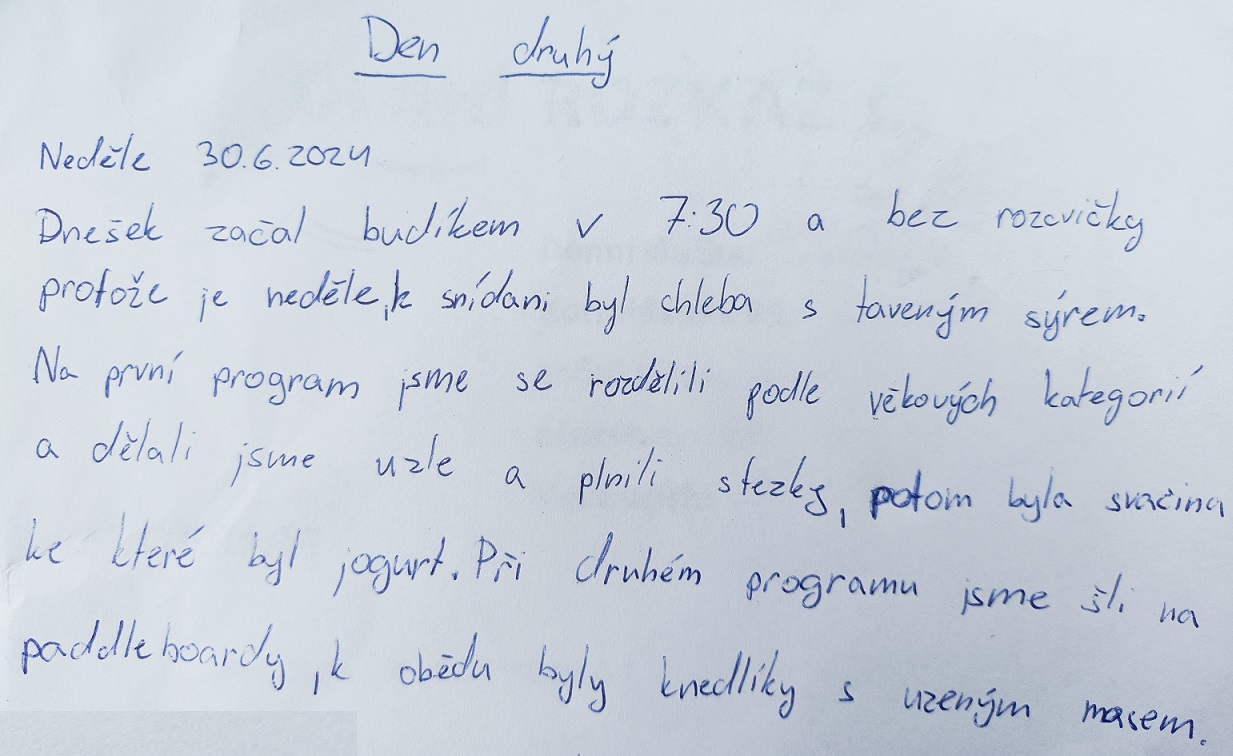 Den druhý
Neděle 30.6.2024
Dnešek začal budíkem v 7:30 a bez rozcvičky
protože je neděle, k snídani byl chleba s taveným sýrem.
Na první program jsme se rozdělili podle věkových kategorií
a dělali jsme uzle a plnili stezky, potom byla svačina
ke které byl jogurt. Při druhém programu jsme šli na
paddleboardy, k obědu byly knedlíky s uzeným masem.